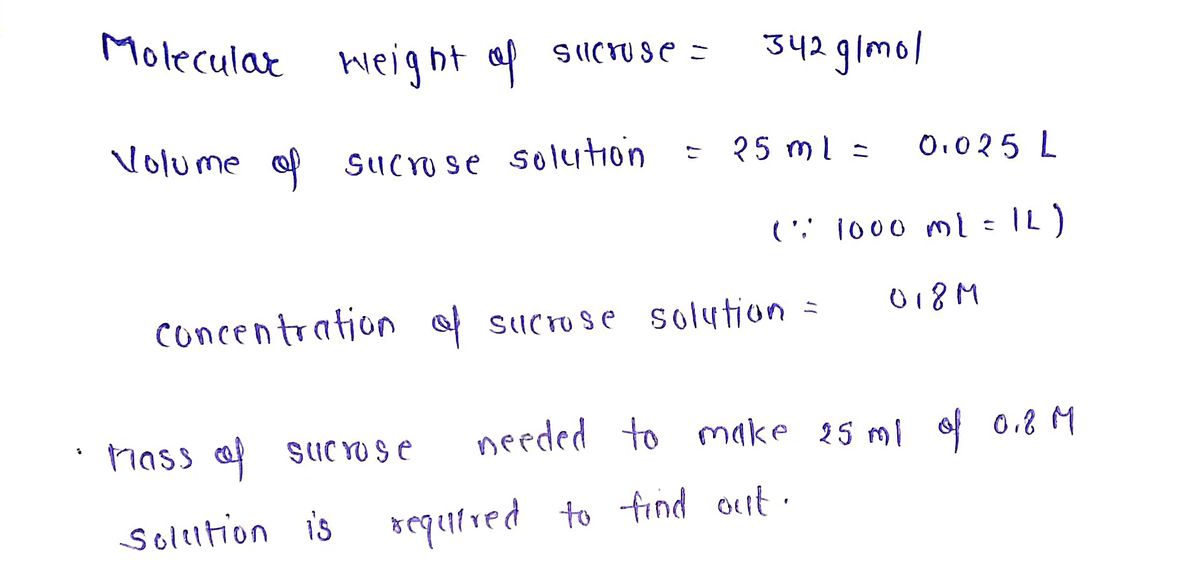 Molecular weight of sucrose = 342 g/mol
Volume of sucrose solution = 25 ml = 0.025 L
(∵ 1000 ml = 1L)
concentration of sucrose solution = 0.8M
Mass of sucrose needed to make 25 ml of 0.8 M
solution is required to find out.